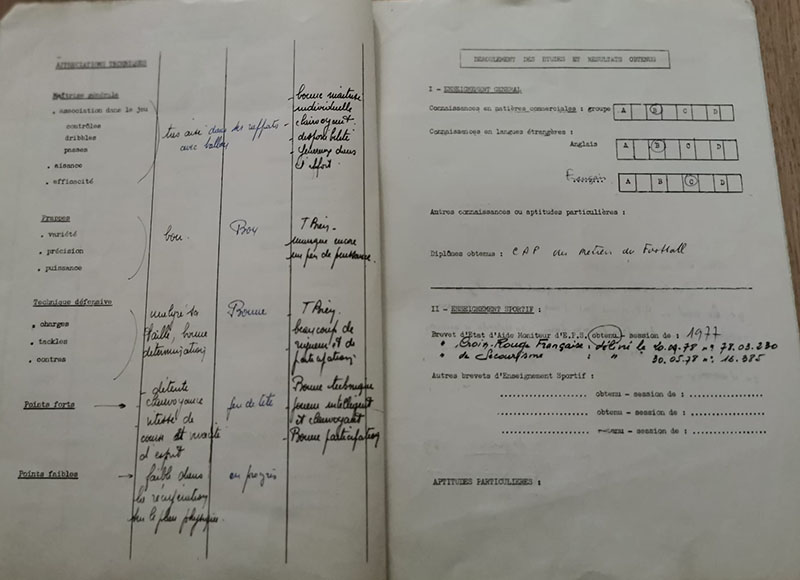 APPRECIATIONS TECHNIQUES
Maîtrise générale
. association dans le jeu
contrôles
dribles
passes
. aisance
. efficacité
très aisé dans ses rapports
avec ballon
- bonne maitrise
individuelle
- clairvoyant
- disponibilité
- sérieux dans
l'effort.
Frappes
. variété
. précision
. puissance
bon.
Bon
T Bien -
manque encore
un peu de puissance.
Technique défensive
. charges
. tackles
. contres
malgré sa
taille, bonne
détermination
Bonne
T Bien.
beaucoup de
rigueur et de
participation
Points forts
- détente
clairvoyance
vitesse de
course et
d'esprit
jeu de tête
Bonne technique
joueur intelligent
et clairvoyant
Bonne participation
Points faibles
faible dans
la récupération
sur le plan physique.
en progrès
DEROULEMENT DES ETUDES ET RESULTATS OBTENUS
I - ENSEIGNEMENT GENERAL
Connaissances en matières commerciales : groupe A B C D
Connaissances en langues étrangères :
Anglais A B C D
Français A B C D
Autres connaissances ou aptitudes particulières :
Diplômes obtenus : CAP du Football
II - ENSEIGNEMENT SPORTIF :
Brevet d'Etat d'Aide Moniteur d'E.P.S. obtenu - session de : 1977
" Croix-Rouge Française : délivré le 20.04.78 n° 78.03.230
" de Secourisme " 30.05.78 n° 16.385
Autres brevets d'Enseignement Sportif :
obtenu - session de :
obtenu - session de :
obtenu - session de :
APTITUDES PARTICULIERES :